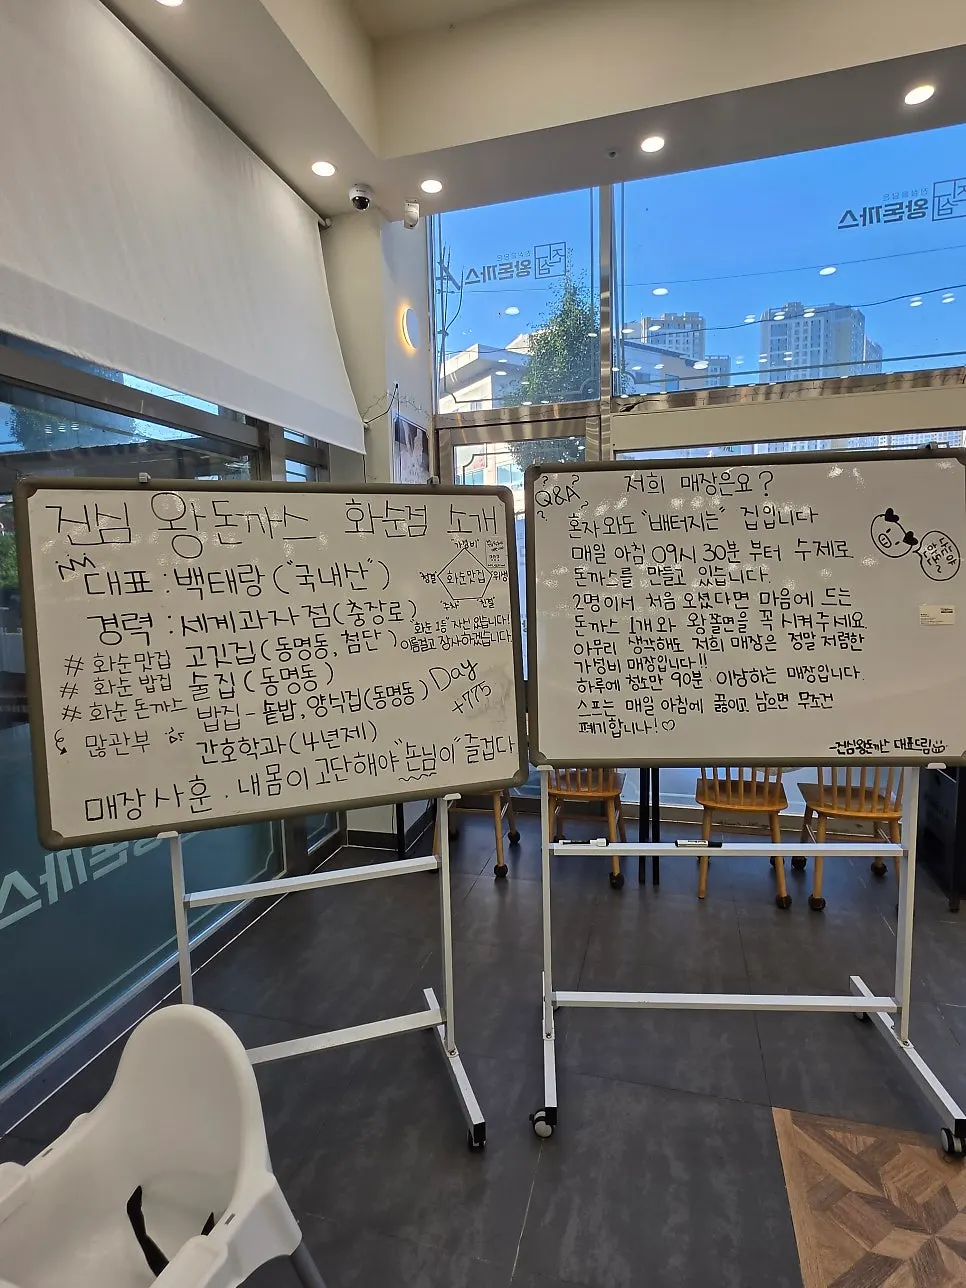 진심 왕돈까스 화순점 소개
대표 : 백태랑 ("국내산")
경력 : 세계과자점 (충장로)
고깃집 (동명동, 첨단)
술집 (동명동)
밥집 - 솥밥, 양식집 (동명동)
간호학과 (4년제)
# 화순맛집
# 화순 밥집
# 화순 돈까스
많관부
가성비
청결
화순맛집
위생
친절
"화순 1등" 자신 있습니다!
이름걸고 장사하겠습니다!
Day
+775
매장 사훈 . 내 몸이 고단해야 "손님이" 즐겁다
Q&A
저희 매장은요?
혼자 와도 "배터지는" 집입니다
매일 아침 09시 30분 부터 수제로
돈까스를 만들고 있습니다.
2명이서 처음 오셨다면 마음에 드는
돈까스 1개와 왕쫄면을 꼭 시켜주세요
아무리 생각해도 저희 매장은 정말 저렴한
가성비 매장입니다!!
하루에 청소만 90분 이상하는 매장입니다.
스프는 매일 아침에 끓이고 남으면 무조건
폐기합니다!
-진심왕돈까스 대표드림
왕돈까스
진심을담은
왕돈까스
돈까스